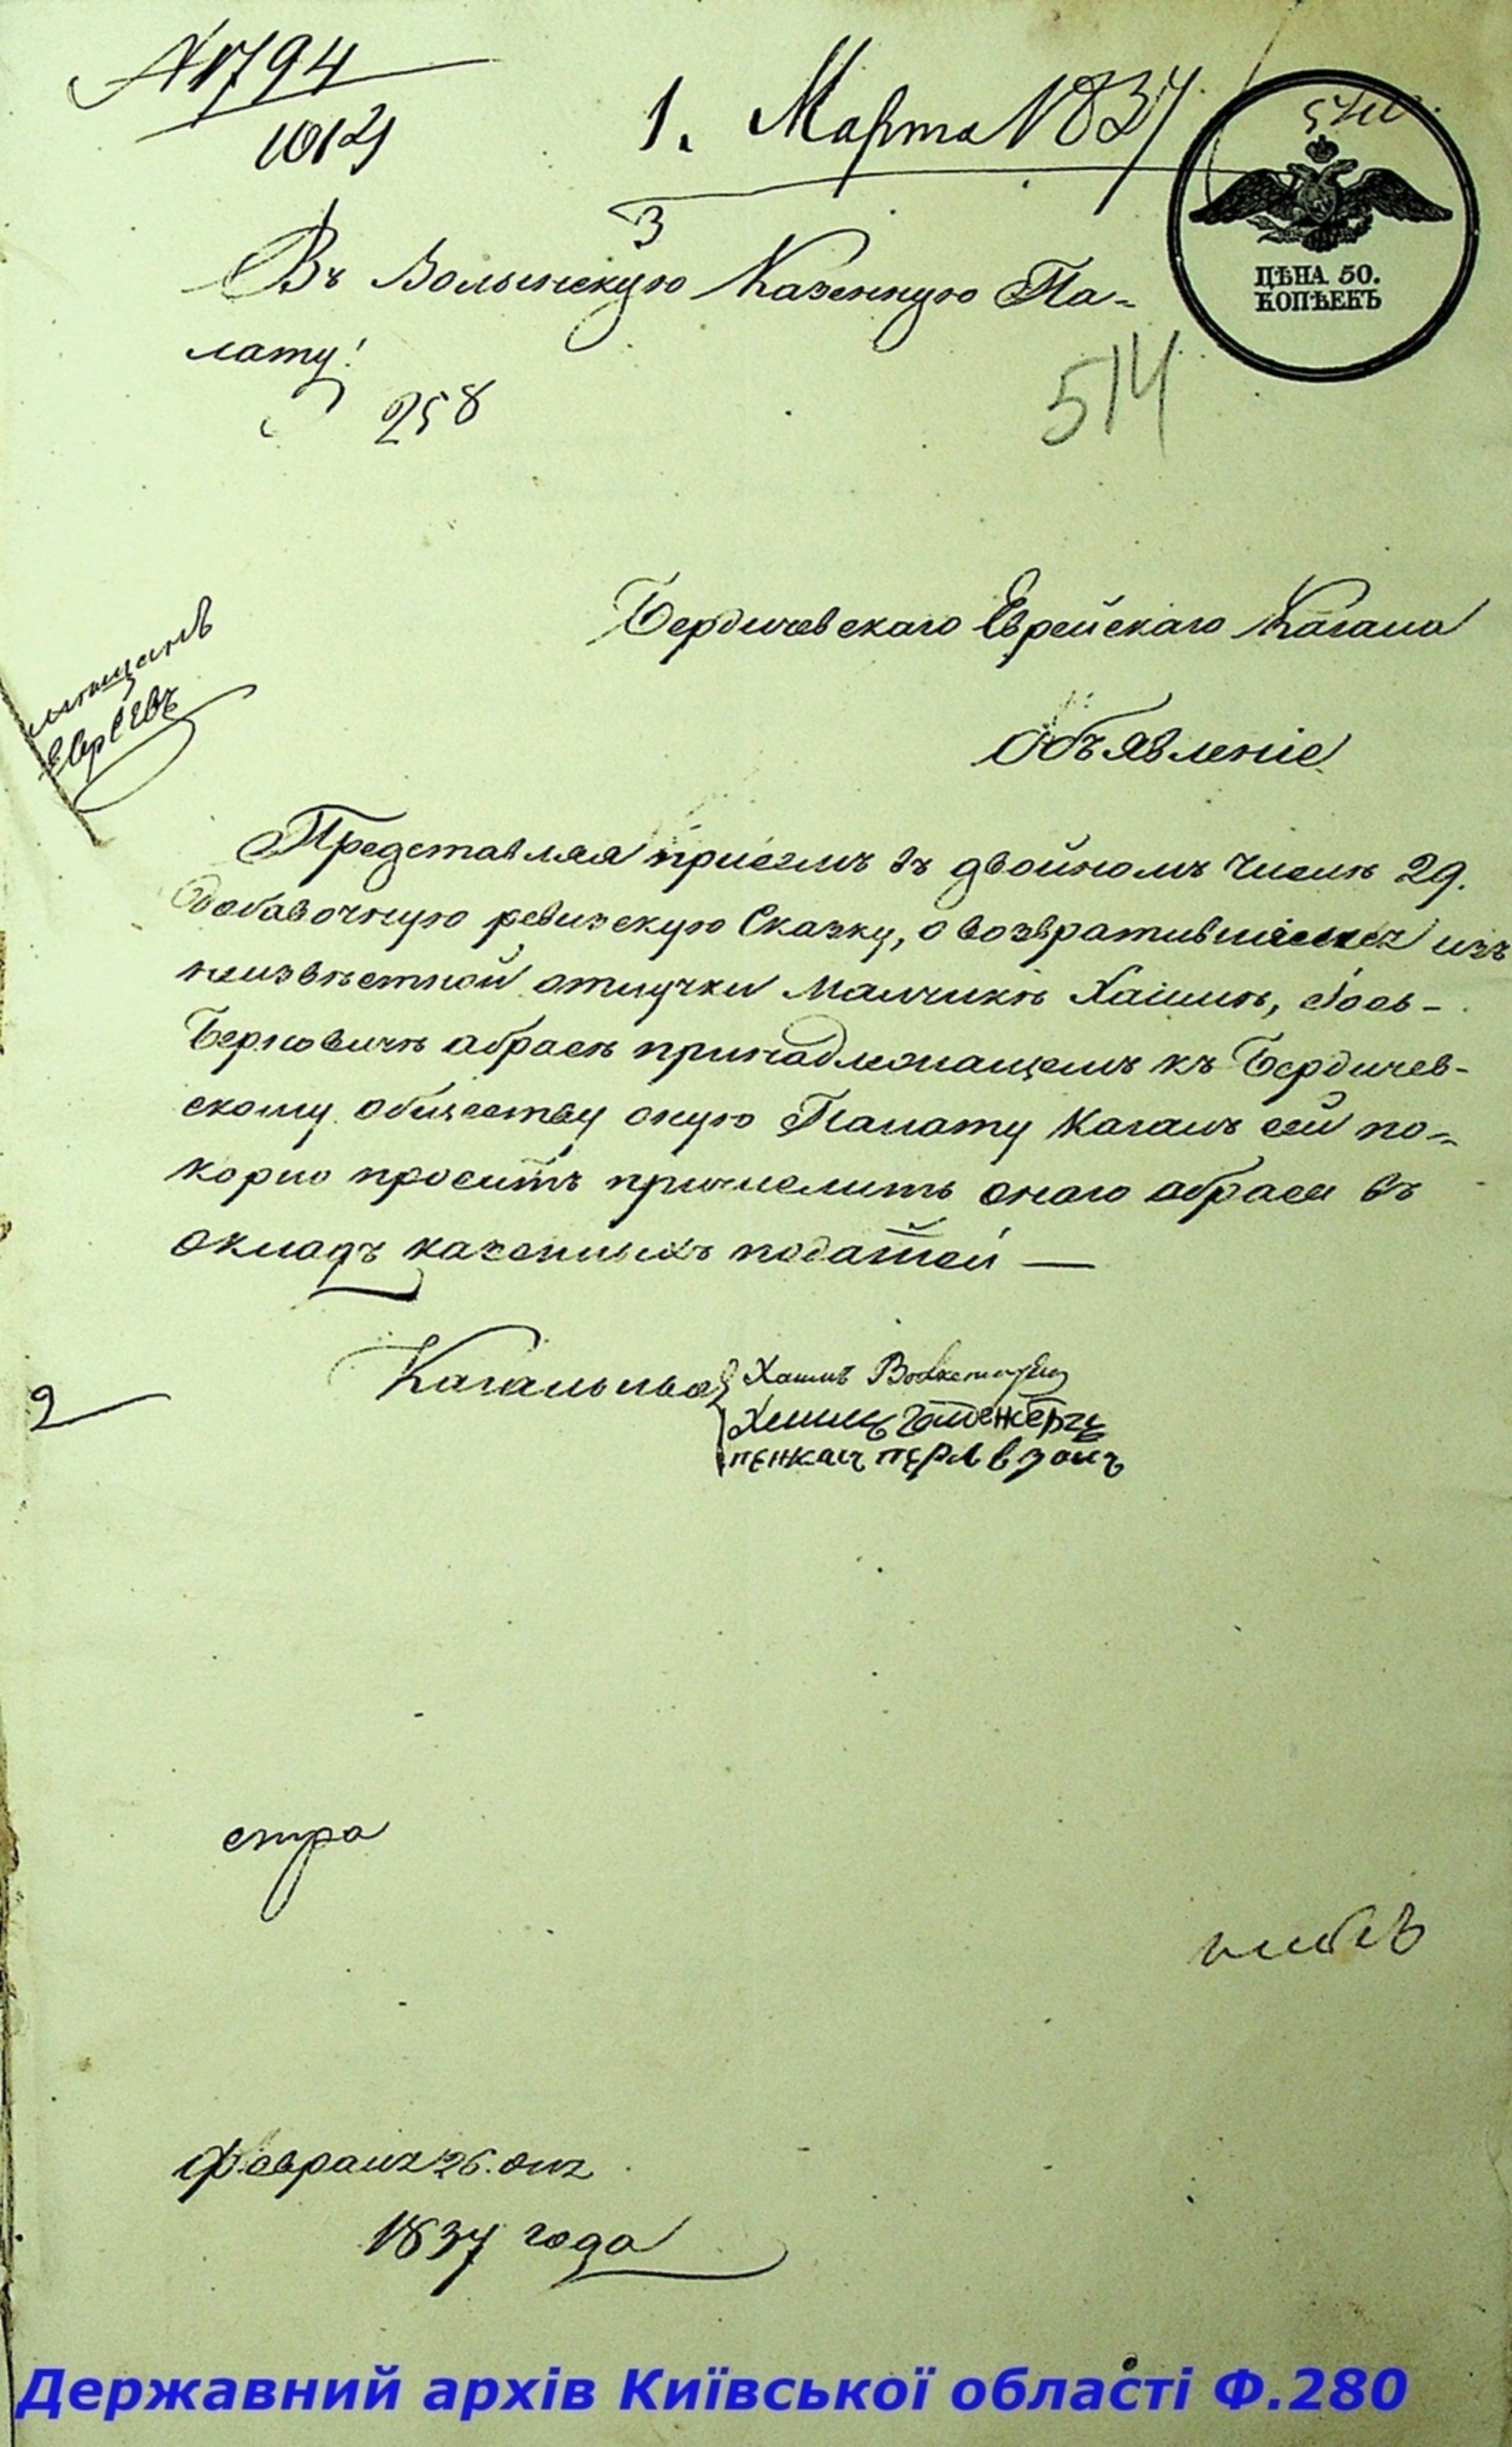 № 1794
1. Марта 1837
3
ЦѢНА 50.
КОПѢЕКЪ
Въ Волынскую Казенную Па-
лату!
258
514
Бердичевскаго Еврейскаго Кагала
мѣщанъ
Евреевъ
Объявленіе
Представляя присемъ въ двойномъ числѣ 29.
добавочную ревизскую Сказку, о возвратившіемся изъ
неизвѣстной отлучки Малчикѣ Хаимѣ, Іось-
Берковичѣ абрасѣ принадлежащемъ къ Бердичев-
скому обществу оную Палату Кагалъ сей по-
корно проситъ причислить онаго абраса въ
окладъ казенныхъ податей —
Кагальные
Хаимъ
2
стра
Февраля 26. дня
1837 года
Державний архів Київської області Ф.280